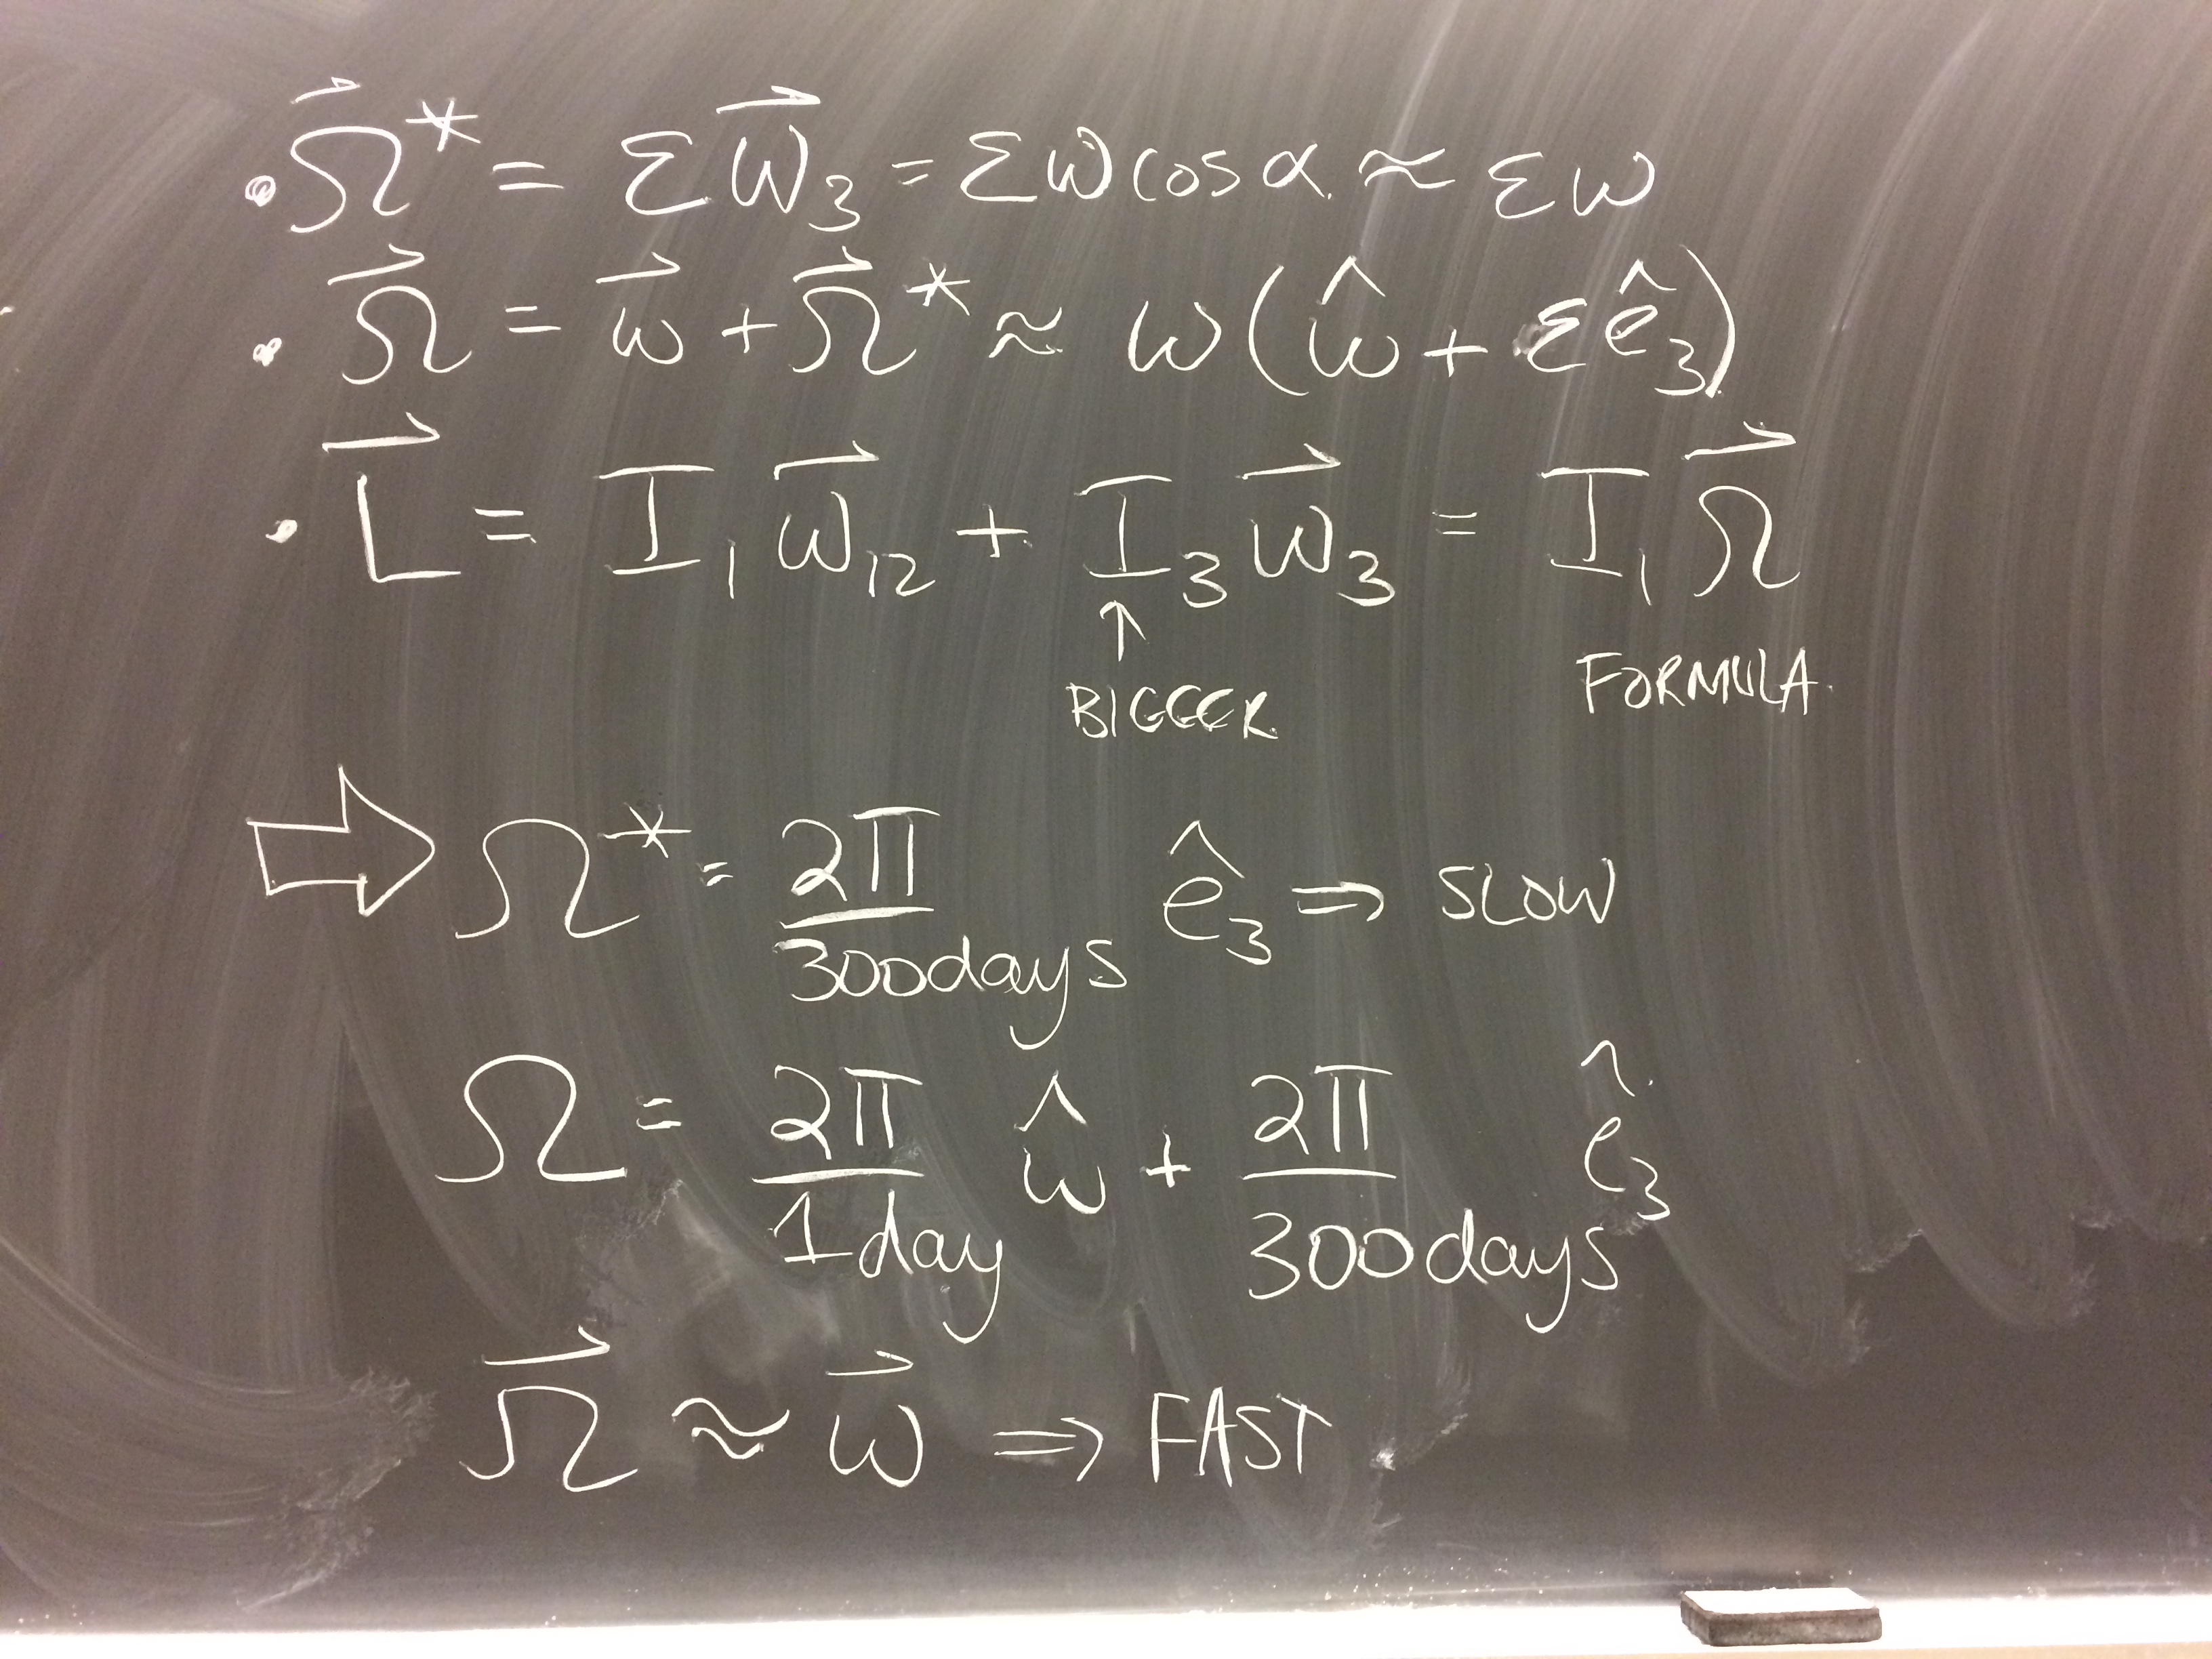 • Ω⃗* = εω⃗₃ = εω cos α ≈ εω
• Ω⃗ = ω⃗ + Ω⃗* ≈ ω(ω̂ + εê₃)
• L⃗ = I₁ω⃗₁₂ + I₃ω⃗₃ = I₁Ω⃗
↑
BIGGER FORMULA
⇨ Ω* = 2π/300days ê₃ ⇒ SLOW
Ω = 2π/1day ω̂ + 2π/300days ê₃
Ω⃗ ≈ ω⃗ ⇒ FAST